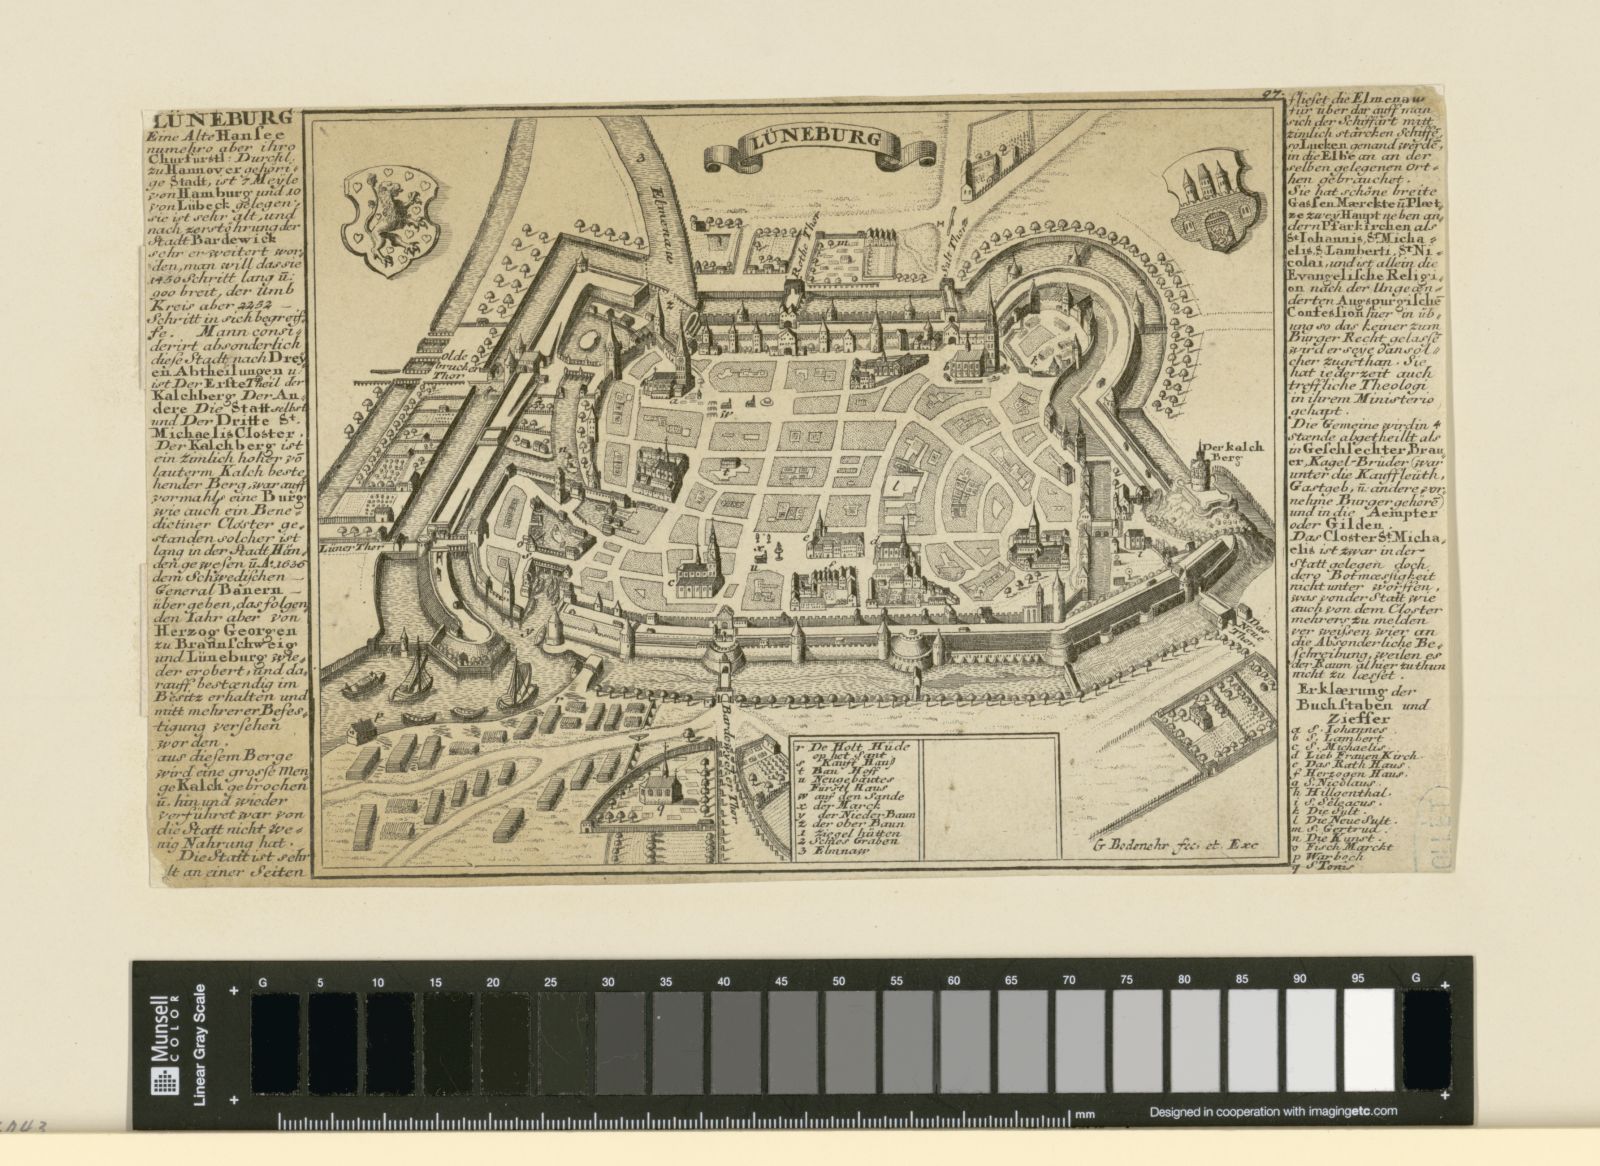 LÜNEBURG
Eine Alte Hansee
nunmehro aber ihro
Churfürstl: Durchl.
zu Hannover gehöri-
ge Stadt, ist 7 Meyle
von Hamburg und 10
von Lübeck gelegen,
sie ist sehr alt, und
nach zerstöhrung der
Stadt Bardewick
sehr erweitert wor,
den, man will das sie
1450 Schritt lang ü:
900 breit, der Umb
Kreis aber 2252
Schritt in sich begreif,
fe. Mann consi,
derirt absonderlich
diese Stadt nach Drey
en Abtheilungen u.
ist Der Erste Theil der
Kalchberg. Der An,
dere Die Statt selbst
und Der Dritte St.
Michaelis Closter.
Der Kalchberg ist
ein zimlich hoher vo
lauterm Kalch beste
hender Berg, war auff
vormahls eine Burg
wie auch ein Bene
dictiner Closter ge,
standen solcher ist
lang in der Stadt Hän,
den gewesen ü. Aº. 1636
dem Schwedischen
General Banern
übergeben, das folgen
den Jahr aber von
Herzog Georgen
zu Braunschweig
und Lüneburg wie,
der erobert, und da,
rauff bestændig im
Besitz erhalten und
mitt mehrerer Befes,
tigung versehen
worden.
aus diesem Berge
wird eine grosse Men
ge Kalch gebrochen
ü. hin und wieder
verführet war von
die Statt nicht we,
nig Nahrung hat.
Die Statt ist sehr
lt an einer Seiten
97.
LÜNEBURG
3
Elmenau
Rothe Thor
Sült Thor
m
Olde
brucker
Thor
Lüner Thor
Der kalch
Berg
Das
Neue
Thor
Bardowicker Thor
a
w
t
l
c
d
e
f
x
u
i
n
p
q
r
y
z
r De Holt Hüde
op het Sant
s Kauff Hauß
t Bau Hoff
u Neugebautes
Fürstl Haus
w auf den Sande
x der Marck
y der Nieder Baun
z der ober Baun
1 ziegel hütten
2 Schies Graben
3 Elmnaw
G Bodenehr fec: et Exc
fließet die Elmenaw
für über dar auff man
sich der Schiffart mitt
zimlich starcken Schiffe,
so Lucken genand werde,
in die Elbe an an der
selben gelegenen Ort,
hen gebrauchet.
Sie hat schöne breite
Gassen Mærckte ü Plæt,
ze zwey Haupt neben an,
dern Pfarkirchen als
St Iohannis, St Micha,
elis, S Lamberti, St Ni,
colai, und ist allein die
Evangelische Religi,
on nach der Ungeæn,
derten Augspurgische
Confession hier in üb,
ung so das keiner zum
Bürger Recht gelasse
wird er seye dan sol,
cher zugethan. Sie
hat iederzeit auch
treffliche Theologi
in ihrem Ministerio
gehapt.
Die Gemeine wird in 4
stænde abgetheillt als
in Geschlechter, Brau
er, Kagel-Brüder war
unter die Kauffleüth,
Gastgeb, ü. andere vor
nehme Bürger gehore
und in die Aempter
oder Gilden.
Das Closter St Micha,
elis ist zwar in der
Statt gelegen doch
dero Botmæssigkeit
nicht unter worffen,
was von der Statt wie
auch von dem Closter
mehrers zu melden
ver weissen wier an
die Absonderliche Be,
schreibung, weilen es
der Raum alhier zu thun
nicht zu læsset.
Erklærung der
Buchstaben und
Zieffer
a S. Iohannes
b S. Lambert
c S. Michaelis
d Lieb Frauen Kirch
e Das Rath Haus
f Herzogen Haus
g S. Nicolaus
h Hillgenthal
i S. Seleacus
k Die Sult
l Die Neue Sult
m S. Gertrud
n Die Kunst
o Fisch Marckt
p Warboch
q S Tonis
Munsell
COLOR
Linear Gray Scale
G 5 10 15 20 25 30 35 40 45 50 55 60 65 70 75 80 85 90 95 G
mm
Designed in cooperation with imagingetc.com